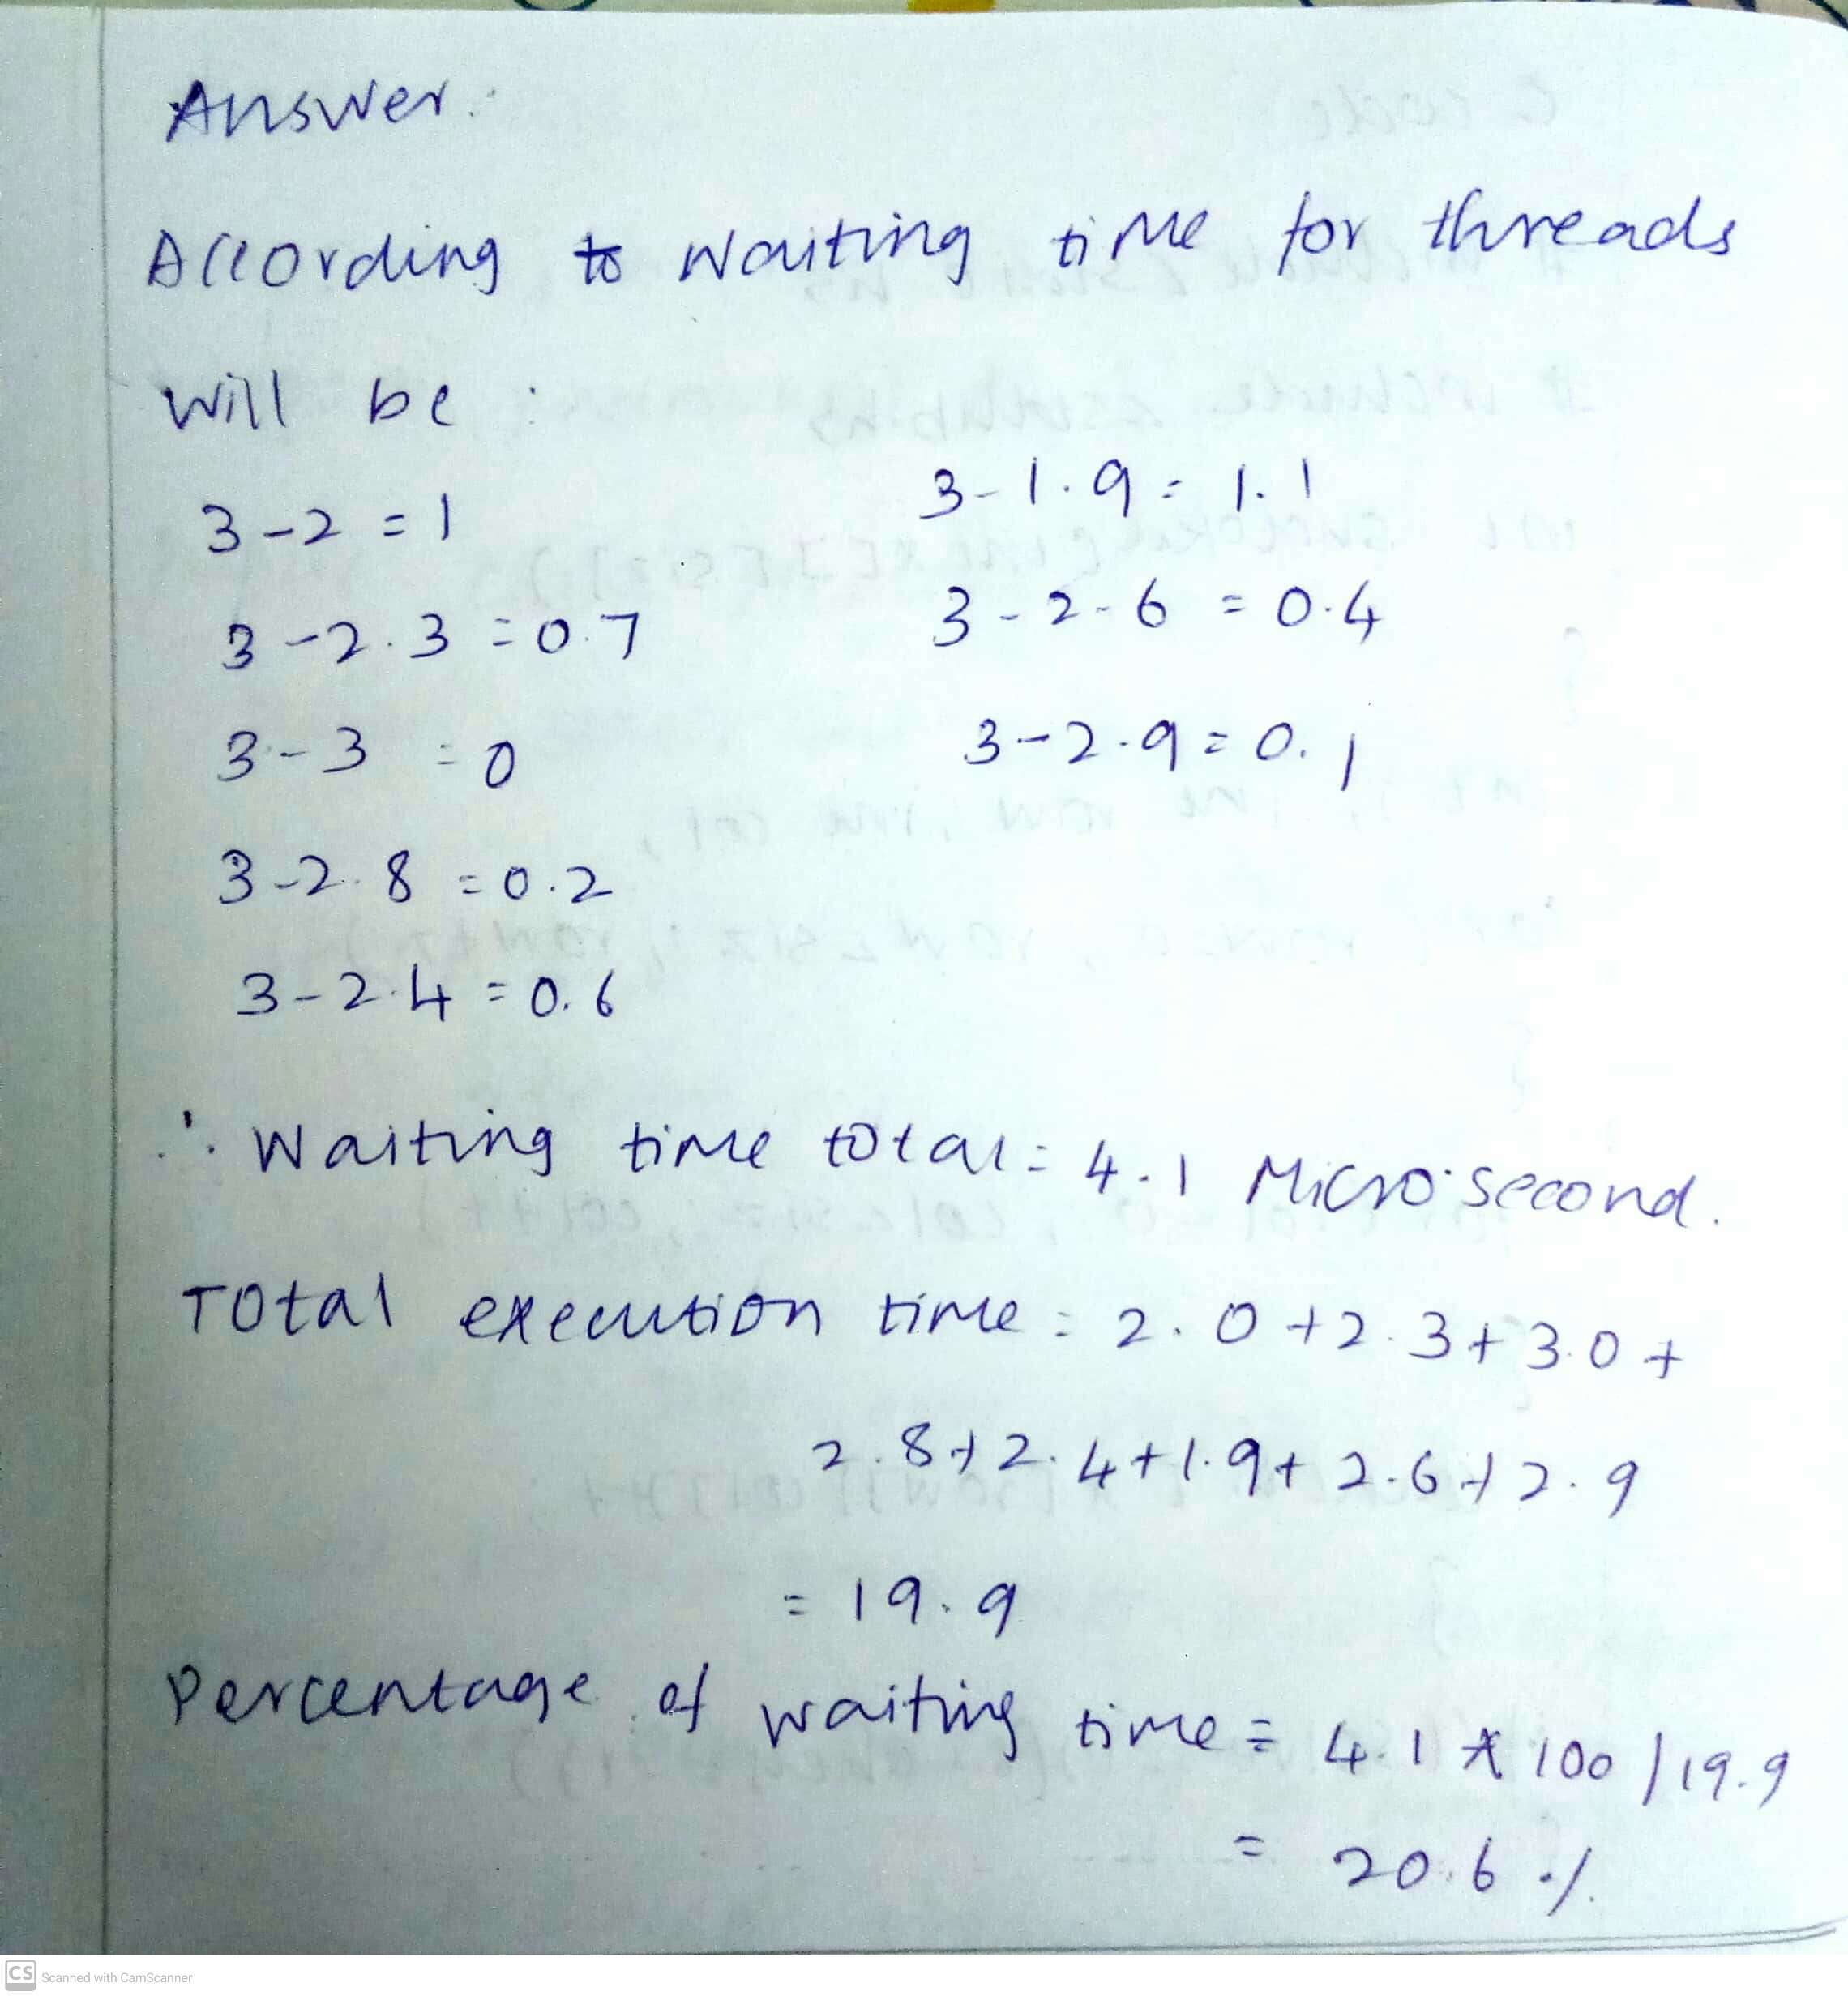 Answer:
According to waiting time for threads
will be :
3-2 = 1
3-2.3 = 0.7
3-3 = 0
3-2.8 = 0.2
3-2.4 = 0.6
3-1.9 = 1.1
3-2-6 = 0.4
3-2.9 = 0.1
∴ Waiting time total = 4.1 Micro second.
Total execution time = 2.0+2.3+3.0+
2.8+2.4+1.9+2.6+2.9
= 19.9
Percentage of waiting time = 4.1 * 100 / 19.9
= 20.6 %
CS Scanned with CamScanner